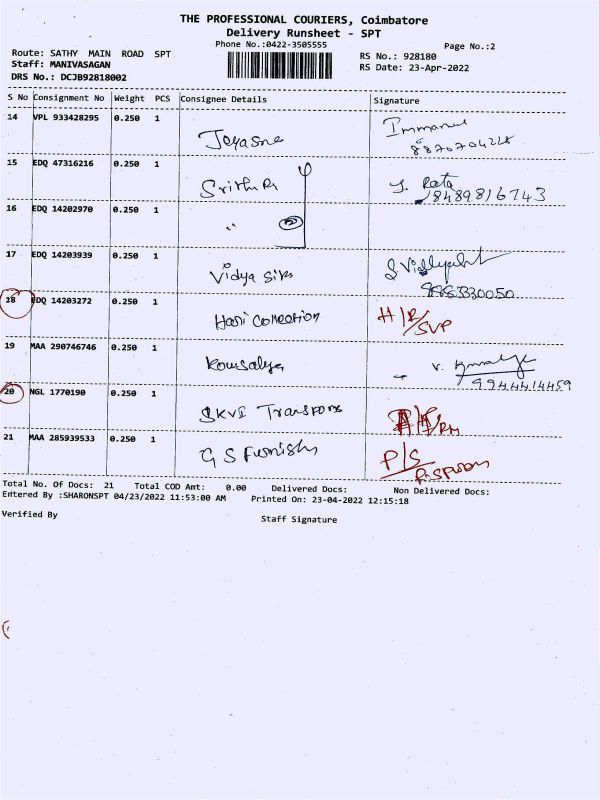 THE PROFESSIONAL COURIERS, Coimbatore
Delivery Runsheet - SPT
Phone No.:0422-3505555
Page No.:2
Route: SATHY MAIN ROAD SPT
RS No.: 928180
Staff: MANIVASAGAN
RS Date: 23-Apr-2022
DRS No.: DCJB92818002
S No Consignment No Weight PCS Consignee Details Signature
14 VPL 933428295 0.250 1
8870704228
15 EDQ 47316216 0.250 1
8489816743
16 EDQ 14202970 0.250 1 "
17 EDQ 14203939 0.250 1 Vidya
18 EDQ 14203272 0.250 1 Hari
H/R/SVP
19 MAA 290746746 0.250 1 Kousalya
9944414459
20 NGL 1770190 0.250 1 SKVE
21 MAA 285939533 0.250 1 G S
P/S
Total No. Of Docs: 21 Total COD Amt: 0.00 Delivered Docs: Non Delivered Docs:
Entered By :SHARONSPT 04/23/2022 11:53:00 AM Printed On: 23-04-2022 12:15:18
Verified By Staff Signature